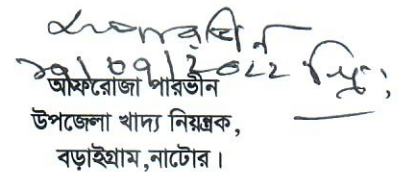 ২১/০৭/২০২২ খ্রি:
আফরোজা পারভীন
উপজেলা খাদ্য নিয়ন্ত্রক,
বড়াইগ্রাম,নাটোর।